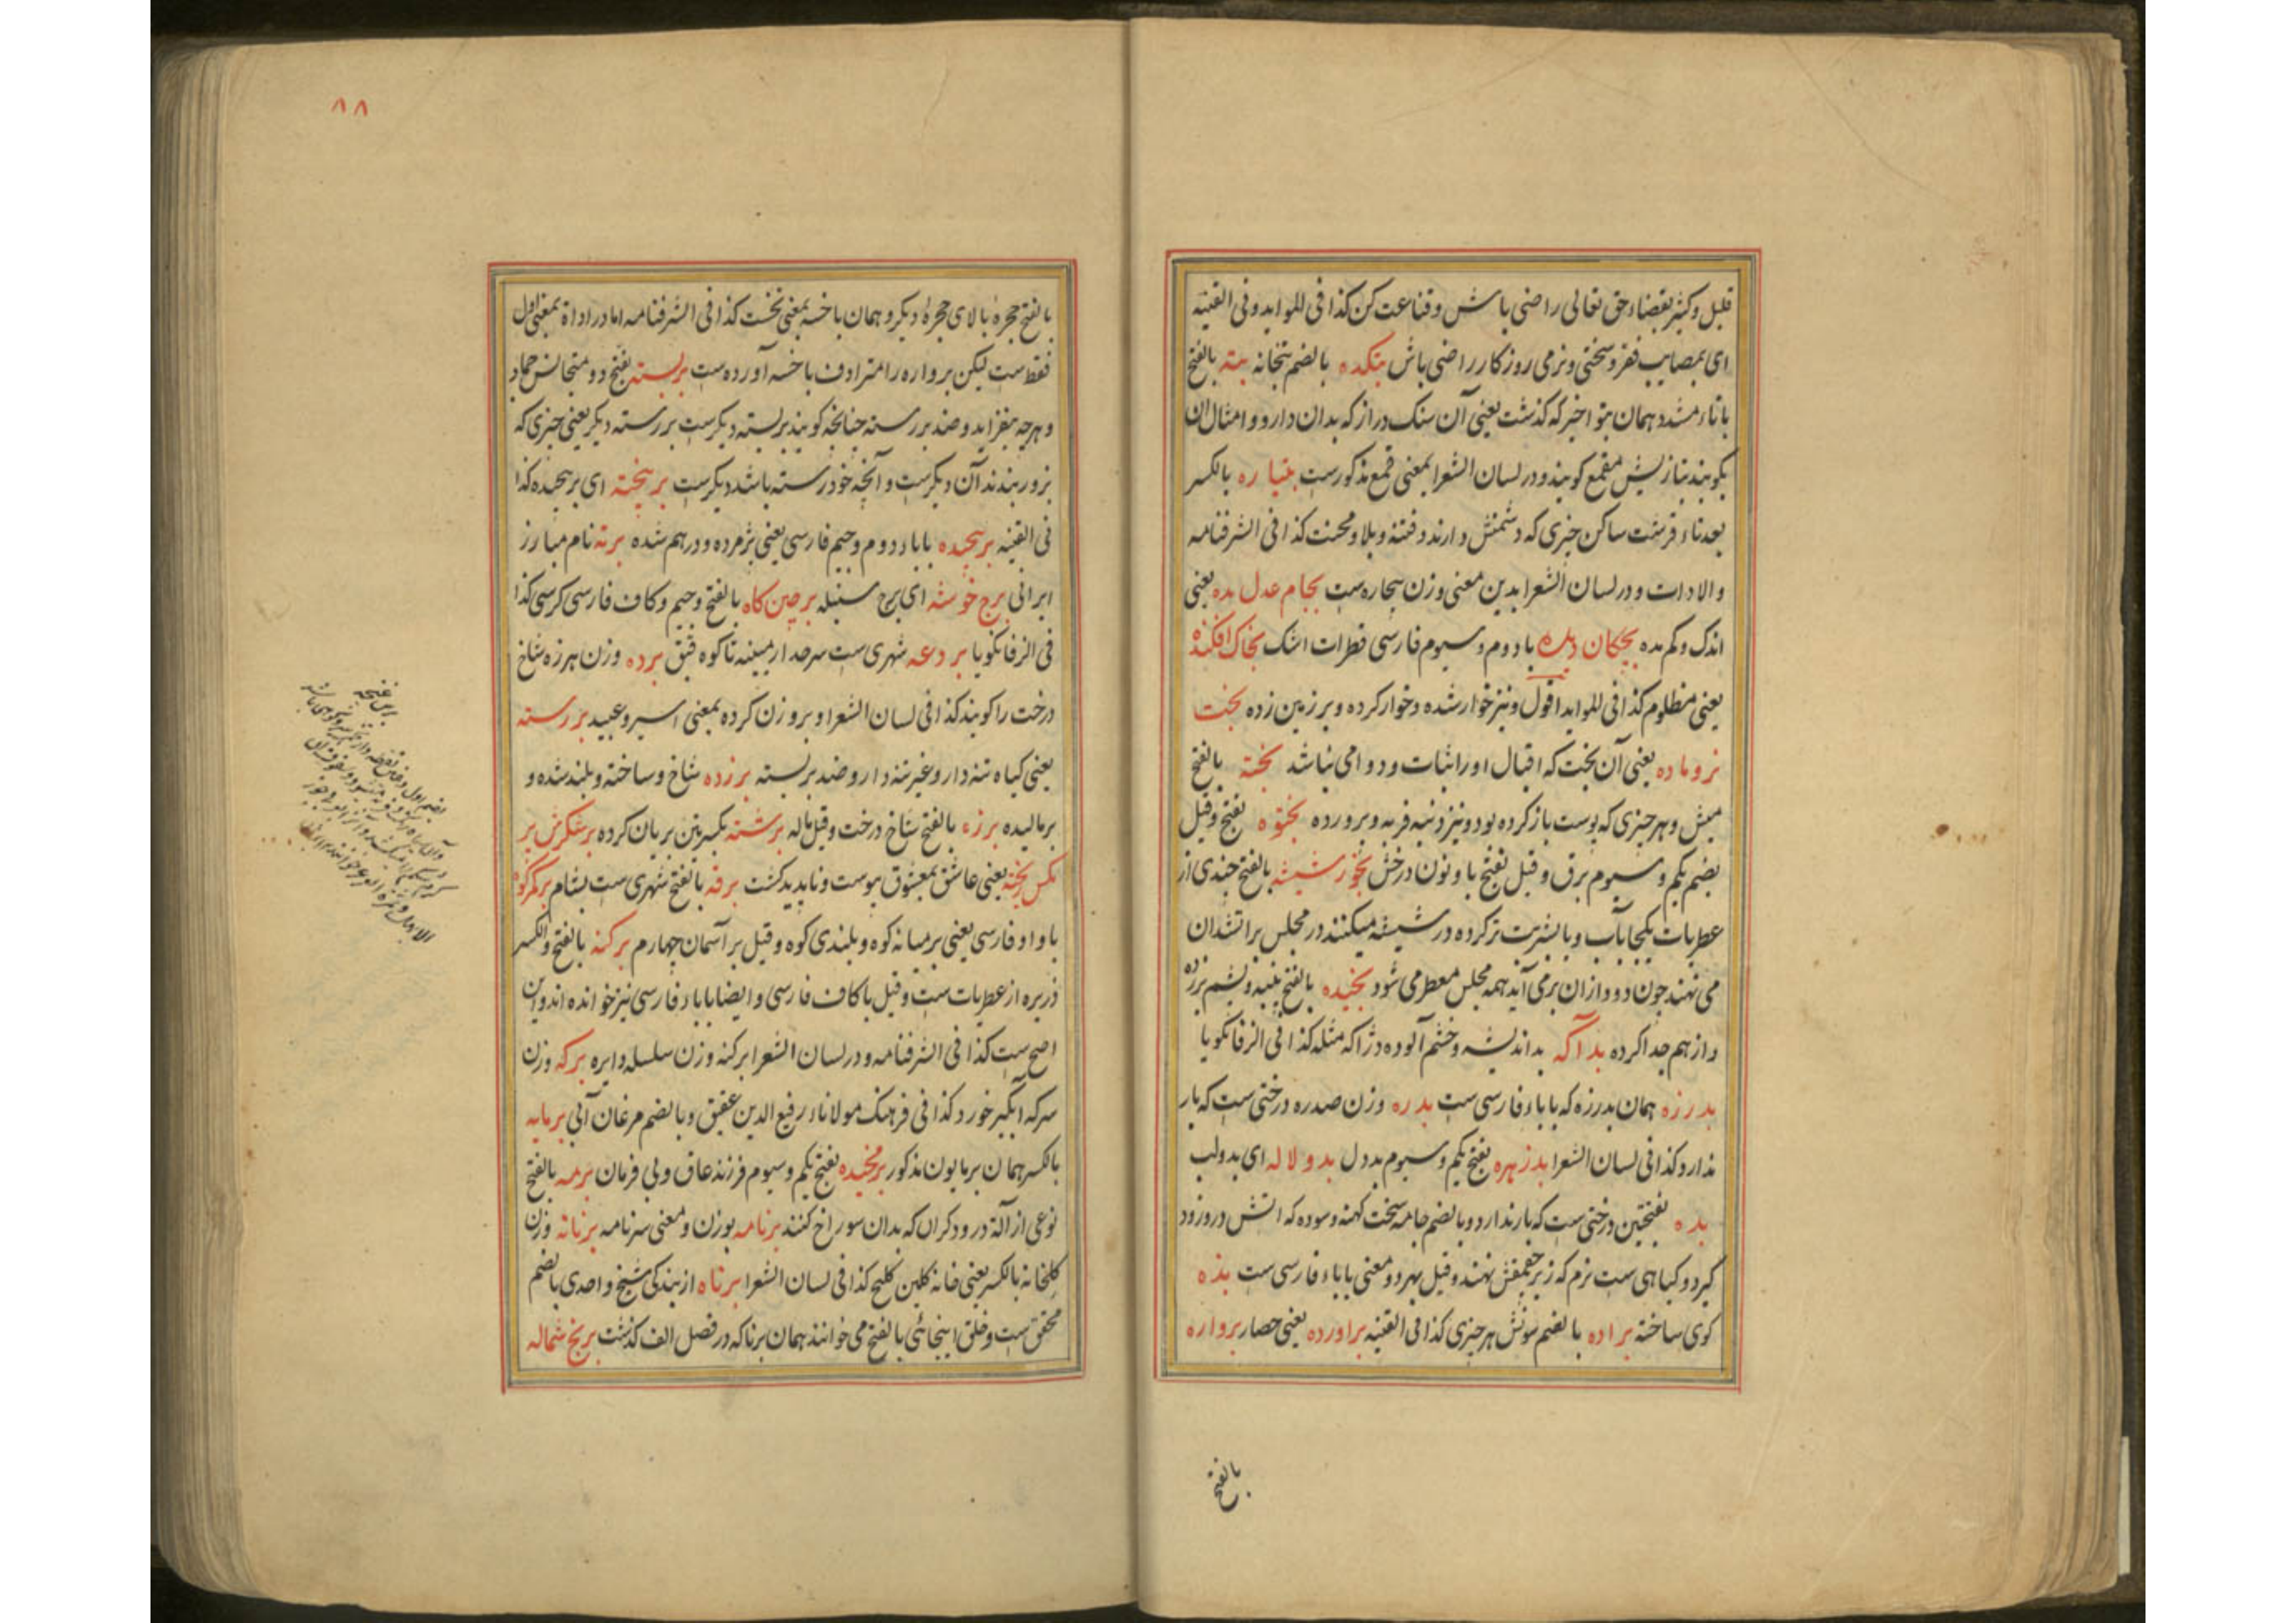 قلیل و کثیر بقضاء حق تعالی راضی باش و قناعت کن کذا فی الموابد و فی القنیه
ای بمصایب فقر و سختی و نرمی روزکار راضی باش بتکده بالضم بتخانه بته بالفتح
با تاء مشدد همان بتو اخیر که کذشت یعنی آن سنک دراز که بدان دارو و امثال ان
بکوبند بتازیش مقمع کویند و در لسان الشعرا بمعنی قمع مذکورست بتیاره بالکسر
بعد تاء قرشت ساکن چیزی که دشمنش دارند و فتنه و بلا و محنت کذا فی الشرفنامه
و الادات و در لسان الشعرا بدین معنی وزن بیچاره ست بجام عدل بده یعنی
اندک و کم مده بچکان دیده با دوم و سیوم فارسی قطرات اشک بخاک افکنده
یعنی مظلوم کذا فی الموابد اقول و نیز خوار شده و خوار کرده و بر زمین زده بخت
نر و ماده یعنی آن بخت که اقبال او را ثبات و دوامی نباشد بخته بالفتح
میش و هر چیزی که پوست باز کرده بود و نیز دنبه فربه و پرورده بختوه بفتح و قیل
بضم یکم و سیوم برق و قیل بفتح با و نون درخش بخور شیشه بالفتح چندی از
عطریات یکجا بآب و یا بشربت تر کرده در شیشه میکنند در مجلس بر اتشدان
می نهند چون دود ازان برمی آید همه مجلس معطر می شود بخیده بالفتح پنبه و پشم بزده
و از هم جدا کرده بد آکه بد اندیشه و خشم آلوده دژاکه مثله کذا فی الزفانکویا
بدرزه همان پدرزه که با باء فارسی ست بدره وزن صدره درختی ست که بار
ندارد کذا فی لسان الشعرا بدزهره بفتح یکم و سیوم بددل بدو لاله ای بدو لب
بده بفتحتین درختی ست که بار ندارد و بالضم جامه سخت کهنه و سوده که اتش درو زود
کیرد و کیاهی ست نرم که زیر چقمقش نهند و قیل بهر دو معنی با باء فارسی ست بذه
کوی ساخته براده بالضم سونش هر چیزی کذا فی القنیه براورده یعنی حصار برواره
بالفتح
۸۸
بالفتح حجرهٔ بالای حجرهٔ دیکر و همان باخسه بمعنی نخست کذا فی الشرفنامه اما در اداة بمعنی اول
فقط ست لیکن برواره را مترادف باخسه آورده ست بربسته بفتح دو متجانس جماد
و هرچه نفزاید و ضد بررسته چنانچه کویند بربسته دیکرست بررسته دیکر یعنی چیزی که
بزور بندند آن دیکرست و آنچه خود رسته باشد دیکرست برپیخته ای برپیچیده کذا
فی القنیه برپیچیده با باء دوم و جیم فارسی یعنی پژمرده و درهم شده برته نام مبارز
ایرانی برج خوشه ای برج سنبله برچین کاه بالفتح و جیم و کاف فارسی کرسی کذا
فی الزفانکویا بردعه شهری ست سرحد ارمینه تا کوه قبق برده وزن هرزه شاخ
درخت را کویند کذا فی لسان الشعرا و بر وزن کرده بمعنی اسیر و عبید بررسته
یعنی کیاه تنه دار و غیر تنه دار و ضد بربسته برزده شاخ و ساخته و بلند شده و
برمالیده برزه بالفتح شاخ درخت و قیل ماله برشته بکسرتین بریان کرده برشکرش پر
مکس ریخته یعنی عاشق بمعشوق پیوست و ناپدید کشت برقه بالفتح شهری ست بشام برکمر کوه
با واو فارسی یعنی بر میانه کوه و بلندی کوه و قیل بر آسمان چهارم برکنه بالفتح و الکسر
ذریره از عطریات ست و قیل با کاف فارسی و ایضا با باء فارسی نیز خوانده اند و این
اصح ست کذا فی الشرفنامه و در لسان الشعرا برکنه وزن سلسله دایره برکه وزن
سرکه ابگیر خورد کذا فی فرهنک مولاناء رفیع الدین عقیق و بالضم مرغان آبی برمایه
بالکسر همان برمایون مذکور برمخیده بفتح یکم و سیوم فرزند عاق و بی فرمان برمه بالفتح
نوعی از آلة درودکران که بدان سوراخ کنند برنامه بوزن و معنی سرنامه برنانه وزن
کلخانه بالکسر یعنی خانه کلین کلیج کذا فی لسان الشعرا برناه از بندکی شیخ واحدی بالضم
محقق ست و خلق اینجائی بالفتح می خوانند همان برنا که در فصل الف کذشت برنج شماله